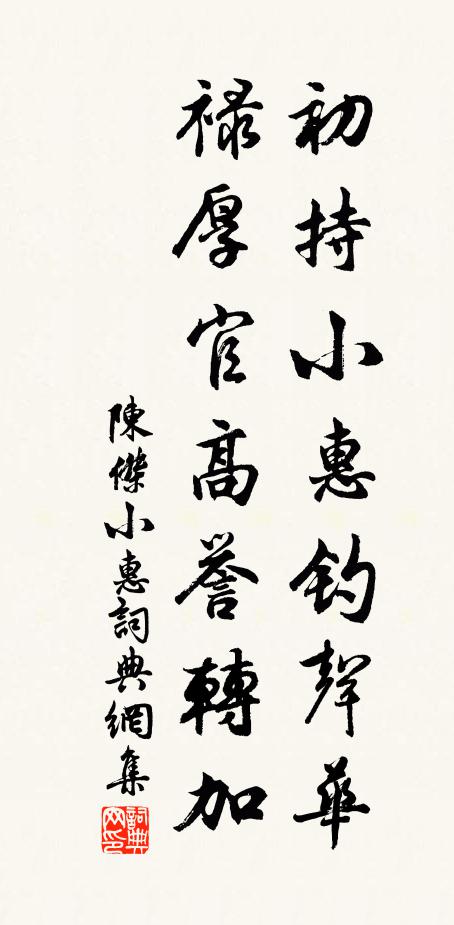 初持小惠釣聲華
祿厚官高誉轉加
陳傑小惠詞典網集
詞典网印